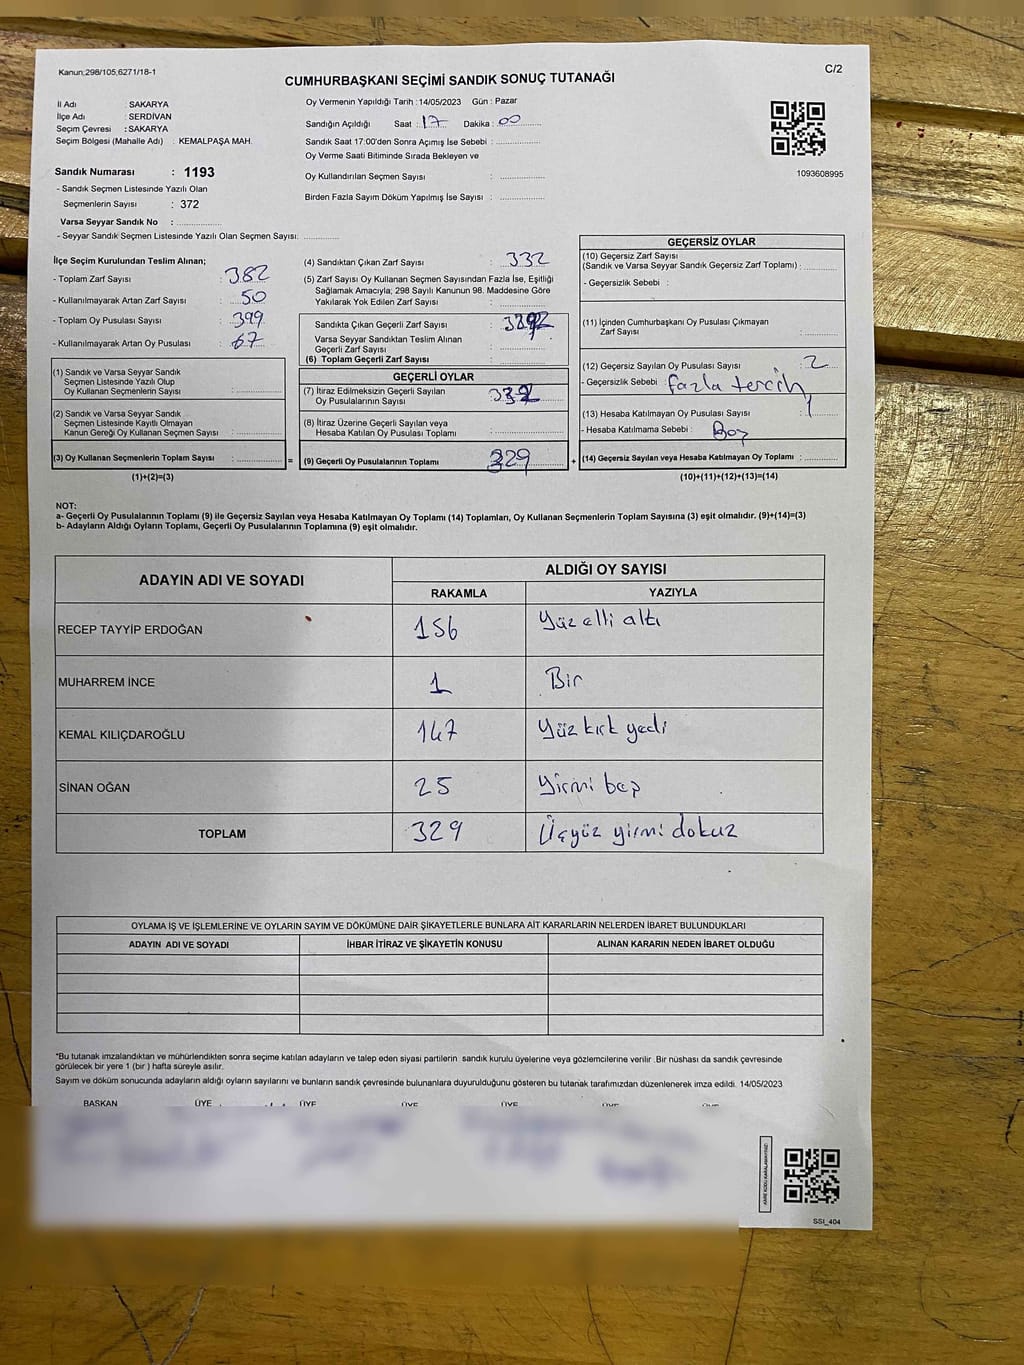 Kanun;298/105;6271/18-1
C/2
CUMHURBAŞKANI SEÇİMİ SANDIK SONUÇ TUTANAĞI
İl Adı : SAKARYA
İlçe Adı : SERDİVAN
Seçim Çevresi : SAKARYA
Seçim Bölgesi (Mahalle Adı) : KEMALPAŞA MAH.
Sandık Numarası : 1193
- Sandık Seçmen Listesinde Yazılı Olan
Seçmenlerin Sayısı : 372
Varsa Seyyar Sandık No :
- Seyyar Sandık Seçmen Listesinde Yazılı Olan Seçmen Sayısı:
Oy Vermenin Yapıldığı Tarih :14/05/2023 Gün : Pazar
Sandığın Açıldığı Saat : 17 Dakika : 00
Sandık Saat 17:00'den Sonra Açımış İse Sebebi :
Oy Verme Saati Bitiminde Sırada Bekleyen ve
Oy Kullandırılan Seçmen Sayısı :
Birden Fazla Sayım Döküm Yapılmış İse Sayısı :
1093608995
İlçe Seçim Kurulundan Teslim Alınan;
- Toplam Zarf Sayısı : 382
- Kullanılmayarak Artan Zarf Sayısı : 50
- Toplam Oy Pusulası Sayısı : 399
- Kullanılmayarak Artan Oy Pusulası : 67
(1) Sandık ve Varsa Seyyar Sandık
Seçmen Listesinde Yazılı Olup
Oy Kullanan Seçmenlerin Sayısı :
(2) Sandık ve Varsa Seyyar Sandık
Seçmen Listesinde Kayıtlı Olmayan
Kanun Gereği Oy Kullanan Seçmen Sayısı :
(3) Oy Kullanan Seçmenlerin Toplam Sayısı :
(1)+(2)=(3)
(4) Sandıktan Çıkan Zarf Sayısı : 332
(5) Zarf Sayısı Oy Kullanan Seçmen Sayısından Fazla İse, Eşitliği
Sağlamak Amacıyla; 298 Sayılı Kanunun 98. Maddesine Göre
Yakılarak Yok Edilen Zarf Sayısı :
Sandıkta Çıkan Geçerli Zarf Sayısı :
Varsa Seyyar Sandıktan Teslim Alınan
Geçerli Zarf Sayısı :
(6) Toplam Geçerli Zarf Sayısı :
GEÇERLİ OYLAR
(7) İtiraz Edilmeksizin Geçerli Sayılan
Oy Pusulalarının Sayısı :
(8) İtiraz Üzerine Geçerli Sayılan veya
Hesaba Katılan Oy Pusulası Toplamı :
= (9) Geçerli Oy Pusulalarının Toplamı : 329 +
GEÇERSİZ OYLAR
(10) Geçersiz Zarf Sayısı
(Sandık ve Varsa Seyyar Sandık Geçersiz Zarf Toplamı) :
- Geçersizlik Sebebi :
(11) İçinden Cumhurbaşkanı Oy Pusulası Çıkmayan
Zarf Sayısı :
(12) Geçersiz Sayılan Oy Pusulası Sayısı : 2
- Geçersizlik Sebebi : fazla tercih
(13) Hesaba Katılmayan Oy Pusulası Sayısı : 1
- Hesaba Katılmama Sebebi : Boş
(14) Geçersiz Sayılan veya Hesaba Katılmayan Oy Toplamı :
(10)+(11)+(12)+(13)=(14)
NOT:
a- Geçerli Oy Pusulalarının Toplamı (9) ile Geçersiz Sayılan veya Hesaba Katılmayan Oy Toplamı (14) Toplamları, Oy Kullanan Seçmenlerin Toplam Sayısına (3) eşit olmalıdır. (9)+(14)=(3)
b- Adayların Aldığı Oyların Toplamı, Geçerli Oy Pusulalarının Toplamına (9) eşit olmalıdır.
ADAYIN ADI VE SOYADI
ALDIĞI OY SAYISI
RAKAMLA YAZIYLA
RECEP TAYYİP ERDOĞAN 156 Yüz elli altı
MUHARREM İNCE 1 Bir
KEMAL KILIÇDAROĞLU 147 Yüz kırk yedi
SİNAN OĞAN 25 Yirmi beş
TOPLAM 329 Üçyüz yirmi dokuz
OYLAMA İŞ VE İŞLEMLERİNE VE OYLARIN SAYIM VE DÖKÜMÜNE DAİR ŞİKAYETLERLE BUNLARA AİT KARARLARIN NELERDEN İBARET BULUNDUKLARI
ADAYIN ADI VE SOYADI İHBAR İTİRAZ VE ŞİKAYETİN KONUSU ALINAN KARARIN NEDEN İBARET OLDUĞU
*Bu tutanak imzalandıktan ve mühürlendikten sonra seçime katılan adayların ve talep eden siyasi partilerin sandık kurulu üyelerine veya gözlemcilerine verilir .Bir nüshası da sandık çevresinde
görülecek bir yere 1 (bir ) hafta süreyle asılır.
Sayım ve döküm sonucunda adayların aldığı oyların sayılarını ve bunların sandık çevresinde bulunanlara duyurulduğunu gösteren bu tutanak tarafımızdan düzenlenerek imza edildi. 14/05/2023
BAŞKAN ÜYE ÜYE ÜYE ÜYE ÜYE ÜYE
SSI_404